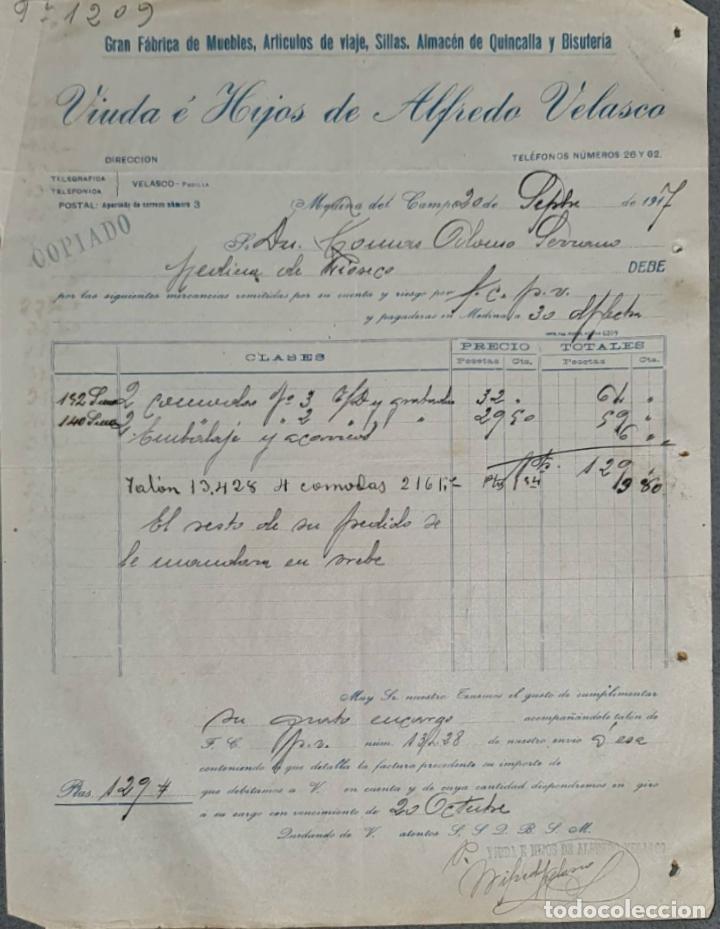 1209
Gran Fábrica de Muebles, Artículos de viaje, Sillas. Almacén de Quincalla y Bisutería
Viuda é Hijos de Alfredo Velasco
DIRECCION
TELÉFONOS NÚMEROS 26 Y 62.
TELEGRAFICA
TELEFONICA
VELASCO-PADILLA
POSTAL: Apartado de correos número 3
COPIADO
Medina del Campo 20 de Septbre de 1917
S. Dn. Tomas Alonso Serrano
Medina de Rioseco DEBE
por las siguientes mercancias remitidas por su cuenta y riesgo por f. c. p. v.
y pagaderas en Medina a 30 d/fecha
CLASES PRECIO TOTALES
Pesetas Cts. Pesetas Cts.
2 comodas nº 3 y grabadas 32 " 64 "
2 " " 2 " " " 29 50 59 "
Embalaje y acarreos 6 "
Pts. 129 "
Talón 13.428 4 comodas 216 19 80
El resto de su pedido se
le mandara en brebe
Muy Sr. nuestro: Tenemos el gusto de cumplimentar
su grato encargo acompañándole talón de
F. C. p.v. núm. 13428 de nuestro envio á esa
conteniendo lo que detalla la factura precedente su importe de
Ptas. 129 que debitamos á V. en cuenta y de cuya cantidad dispondremos en giro
á su cargo con vencimiento de 20 Octubre
Quedando de V. atentos S. S. Q. B. S. M.
P.
VIUDA E HIJOS DE ALFREDO VELASCO
todocoleccion.net